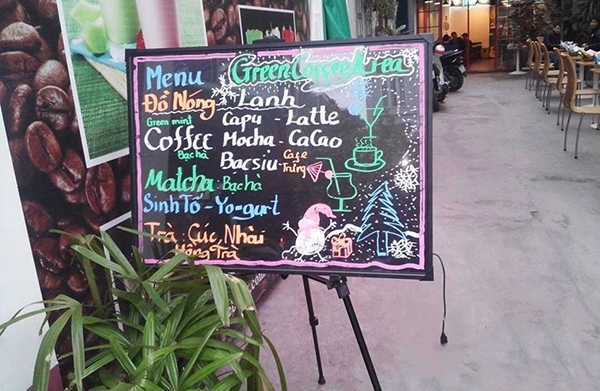 Menu Green Coffee Area
Đồ Nóng - Lạnh
Green mint Capu - Latte
Coffee Mocha - CaCao
Bạc hà Bacsiu Cafe Trứng
Matcha Bạc hà
Sinh Tố - Yo-gurt
Trà Cúc Nhài
Hồng Trà